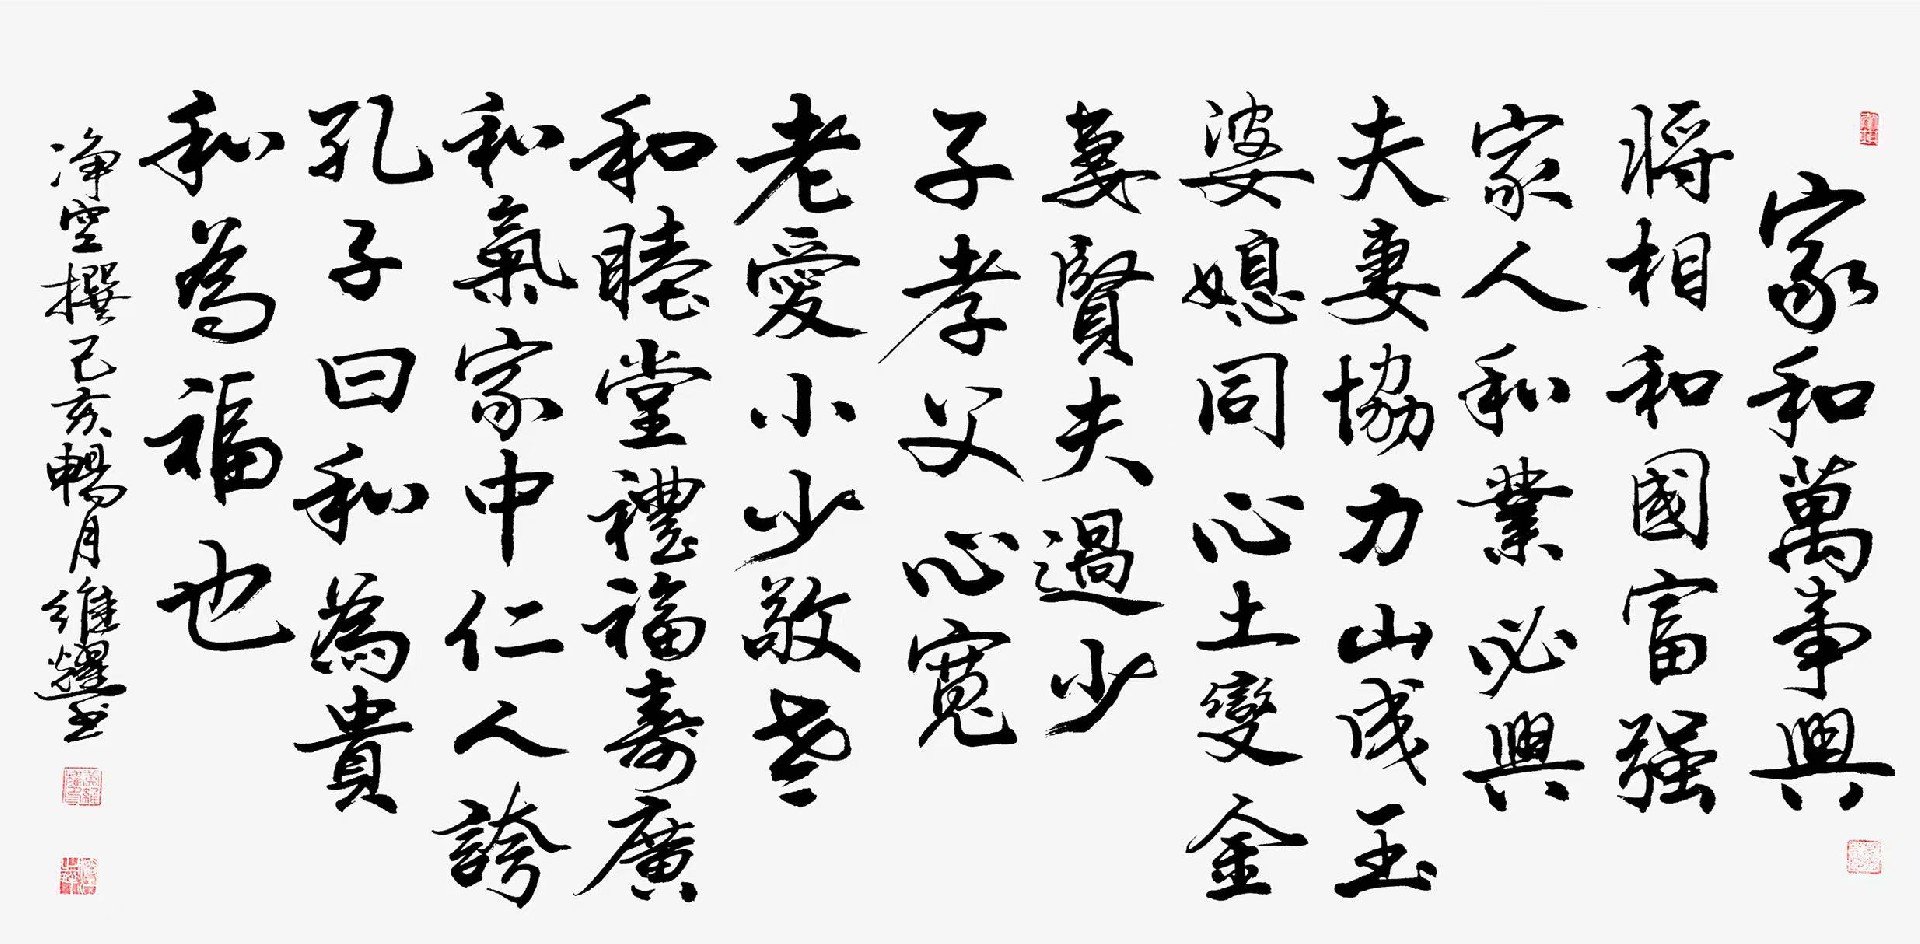 家和萬事興
將相和國富强
家人和業必興
夫妻協力山成玉
婆媳同心土變金
妻賢夫過少
子孝父心寬
老愛小少敬老
和睦堂禮福壽廣
和氣家中仁人誇
孔子曰和為貴
和為福也
净空撰己亥暢月維耀书